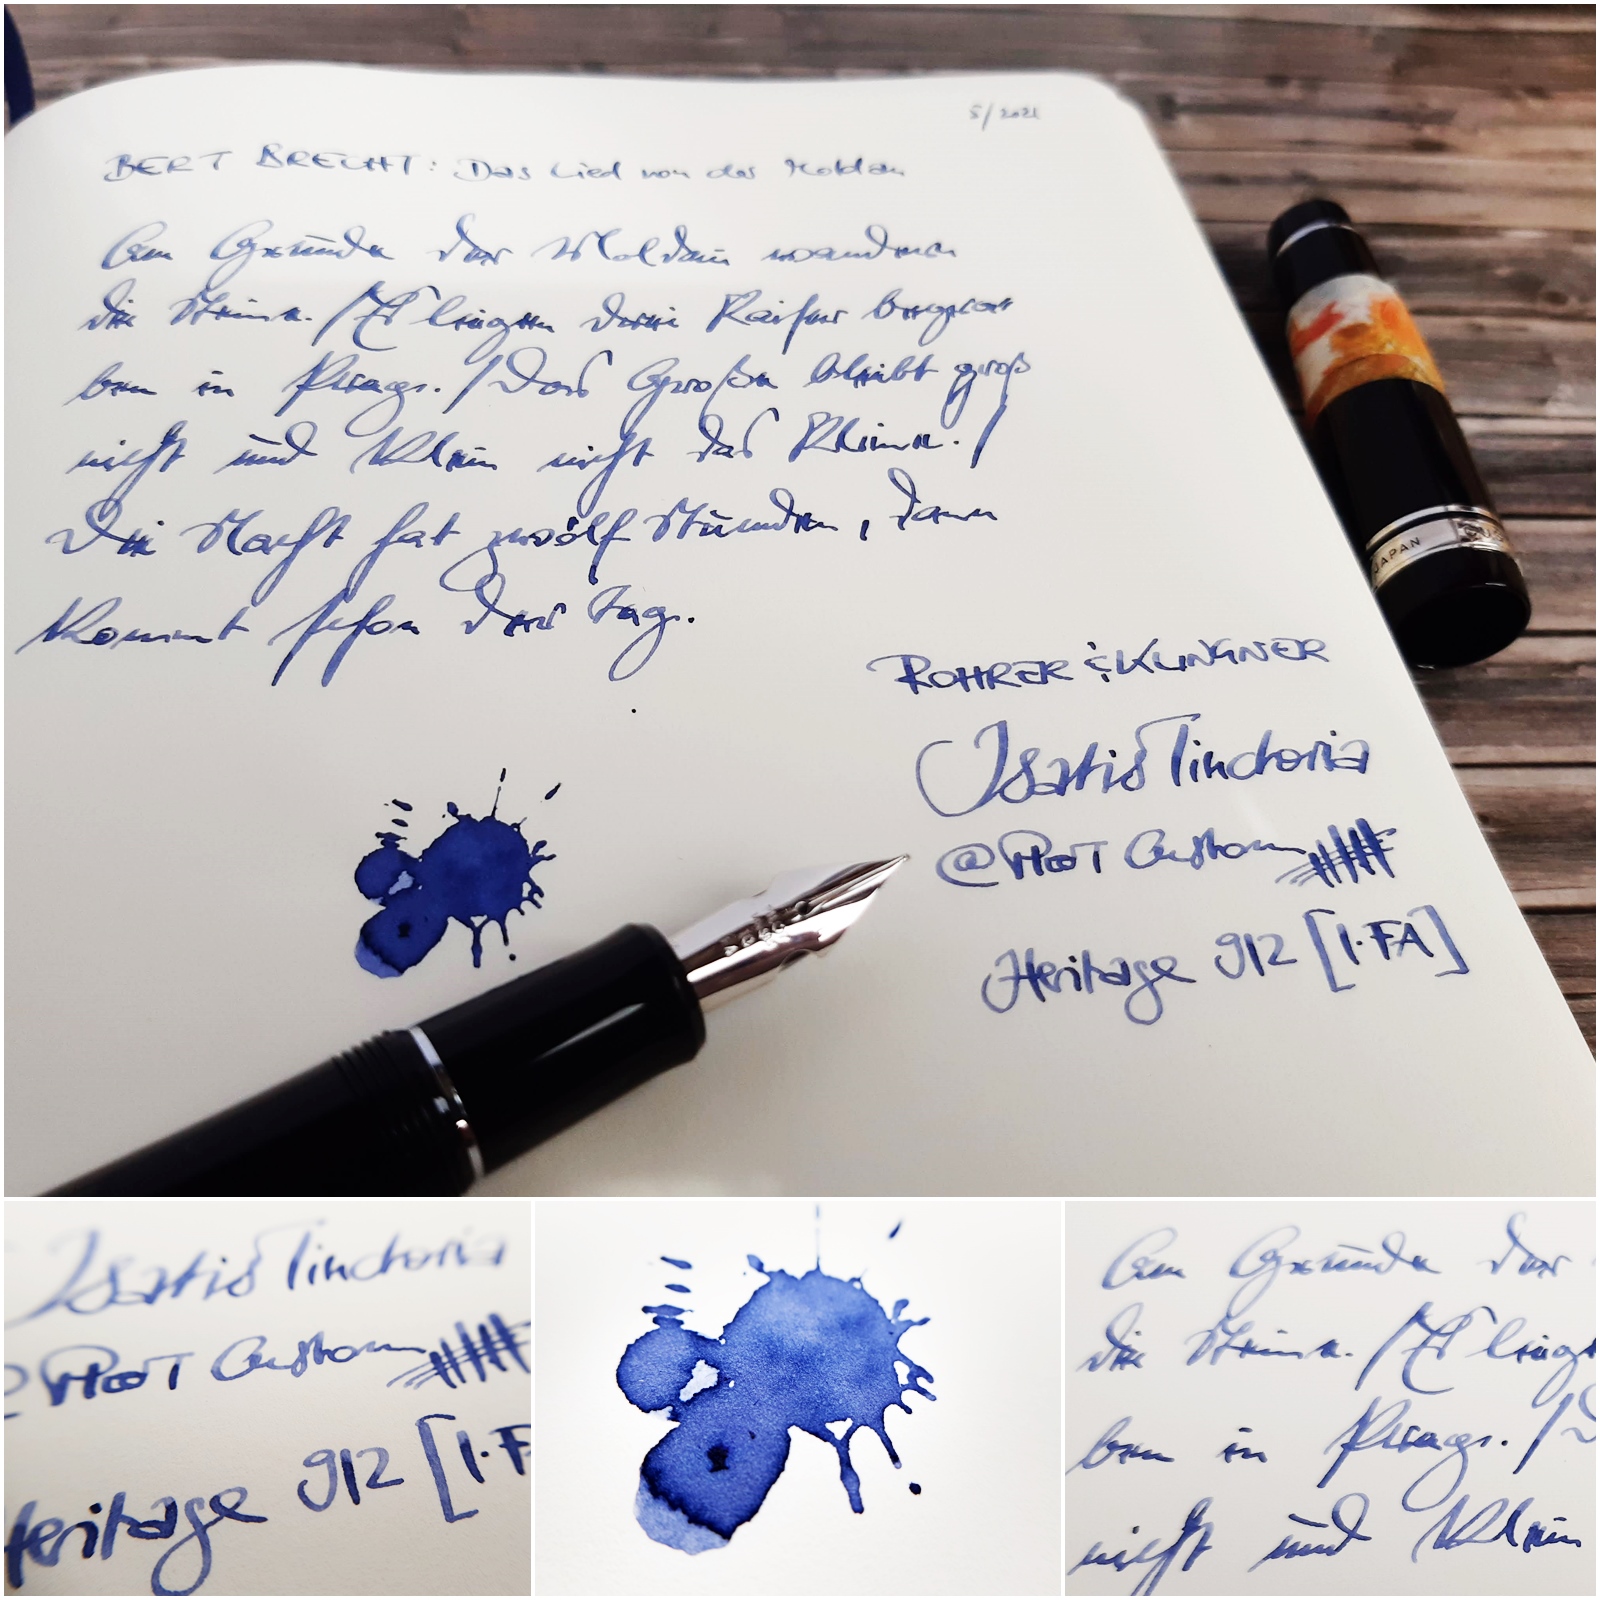 5/2021
BERT BRECHT: Das Lied von der Moldau
Am Grunde der Moldau wandern
die Steine. / Es liegen drei Kaiser begra
ben in Prag. / Das Große bleibt groß
nicht und Klein nicht das Kleine. /
Die Nacht hat zwölf Stunden, dann
Kommt schon der Tag.
JAPAN
ROHRER & KLINGNER
Isatis Tinctoria
@PILOT Custom
Heritage 912 [1·FA]
Isatis Tinctoria
PILOT Custom
Heritage 912 [1·F
Am Grunde der
die Steine. / Es lieg
ben in Prag. / D
nicht und Klein